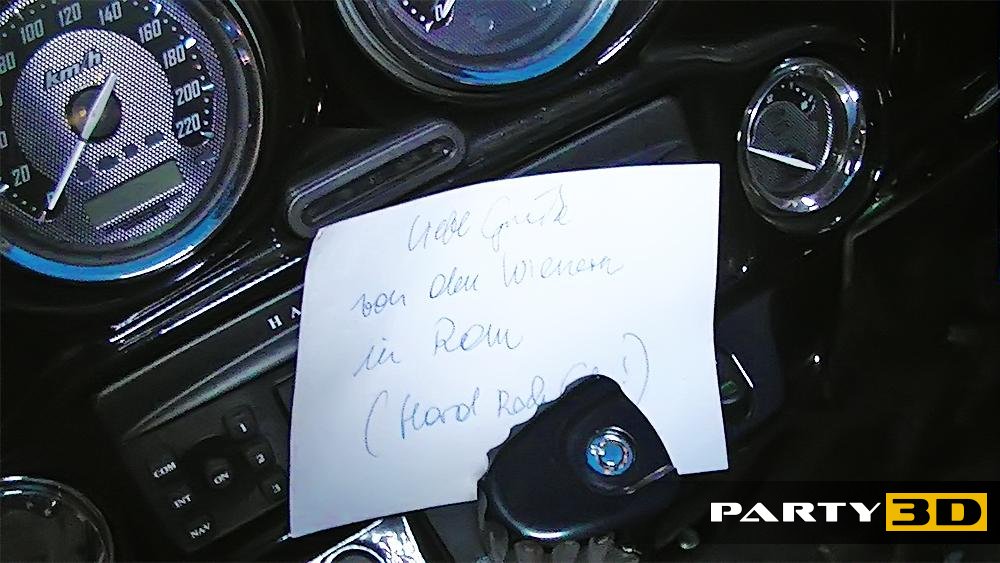 80 100 120 140 160 180 200 220
km/h
20
Liebe Grüße
von den Wienern
in Rom
(Hard Rock !)
HA
COM
INT
NAV
ON
1
2
3
PARTY3D